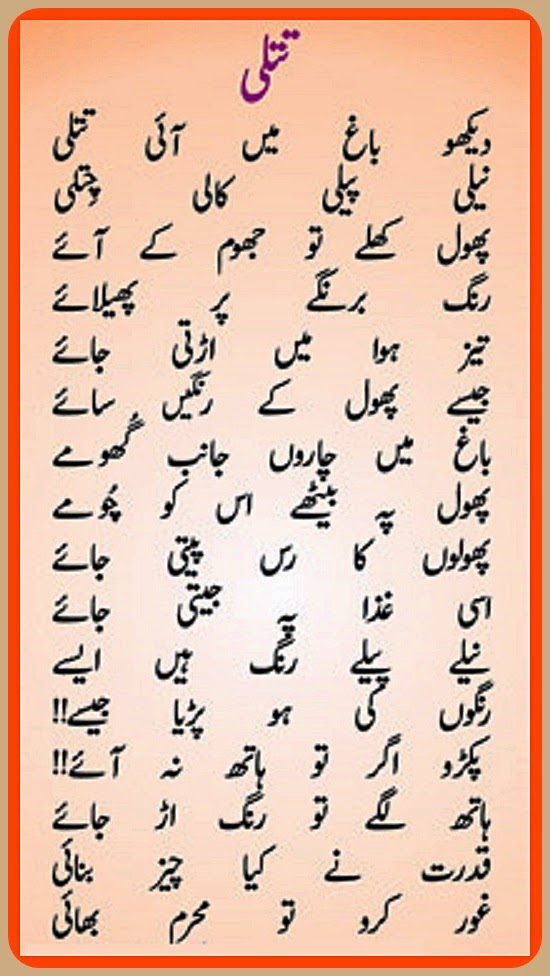 تتلی
دیکھو باغ میں آئی تتلی
نیلی پیلی کالی چِتلی
پھول کھلے تو جھوم کے آئے
رنگ برنگے پر پھیلائے
تیز ہوا میں اڑتی جائے
جیسے پھول کے رنگیں سائے
باغ میں چاروں جانب گھُومے
پھول پہ بیٹھے اس کو چُومے
پھولوں کا رس پیتی جائے
اسی غذا پہ جیتی جائے
نیلے پیلے رنگ ہیں ایسے
رنگوں کی ہو پڑیا جیسے!!
پکڑو اگر تو ہاتھ نہ آئے!!
ہاتھ لگے تو رنگ اڑ جائے
قدرت نے کیا چیز بنائی
غور کرو تو محرم بھائی